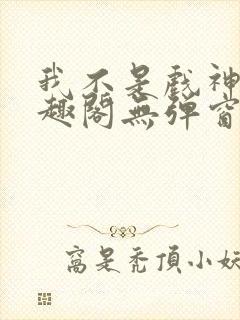 我不是戲神
趣閣無彈窗
窩是禿頂小妖